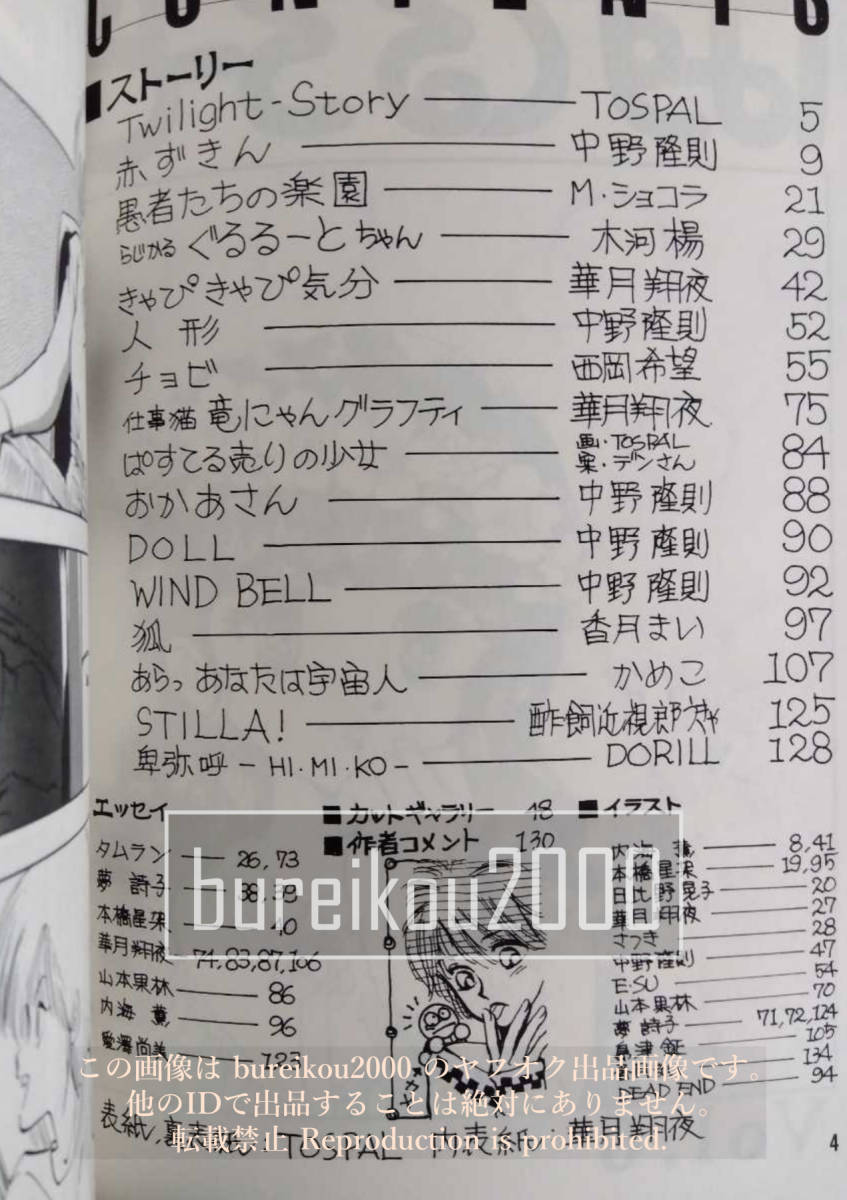 CONTENTS
■ストーリー
Twilight-Story TOSPAL 5
赤ずきん 中野隆則 9
愚者たちの楽園 M・ショコラ 21
らじかる ぐるるーとちゃん 木河楊 29
きゃぴきゃぴ気分 華月翔夜 42
人形 中野隆則 52
チョビ 西岡希望 55
仕事猫 竜にゃんグラフティ 華月翔夜 75
ぱすてる売りの少女 画・TOSPAL 案・デンさん 84
おかあさん 中野隆則 88
DOLL 中野隆則 90
WIND BELL 中野隆則 92
狐 香月まい 97
あらっあなたは宇宙人 かめこ 107
STILLA! 酢飼近視郎 125
卑弥呼-HI・MI・KO- DORILL 128
エッセイ
タムラン 26,73
夢詩子 38,39
本橋星架 40
華月翔夜 74,83,87,106
山本果林 86
内海薫 96
愛澤尚美 123
■カットギャラリー 48
■作者コメント 130
■イラスト
内海薫 8,41
本橋星架 19,95
日比野晃子 20
華月翔夜 27
さつき 28
中野隆則 47
E・SU 54
山本果林 70
夢詩子 71,72,124
105
134
DEAD END 94
表紙/裏表紙 TOSPAL 内表紙 華月翔夜
4
bureikou2000
この画像は bureikou2000 のヤフオク出品画像です。
他のIDで出品することは絶対にありません。
転載禁止 Reproduction is prohibited.